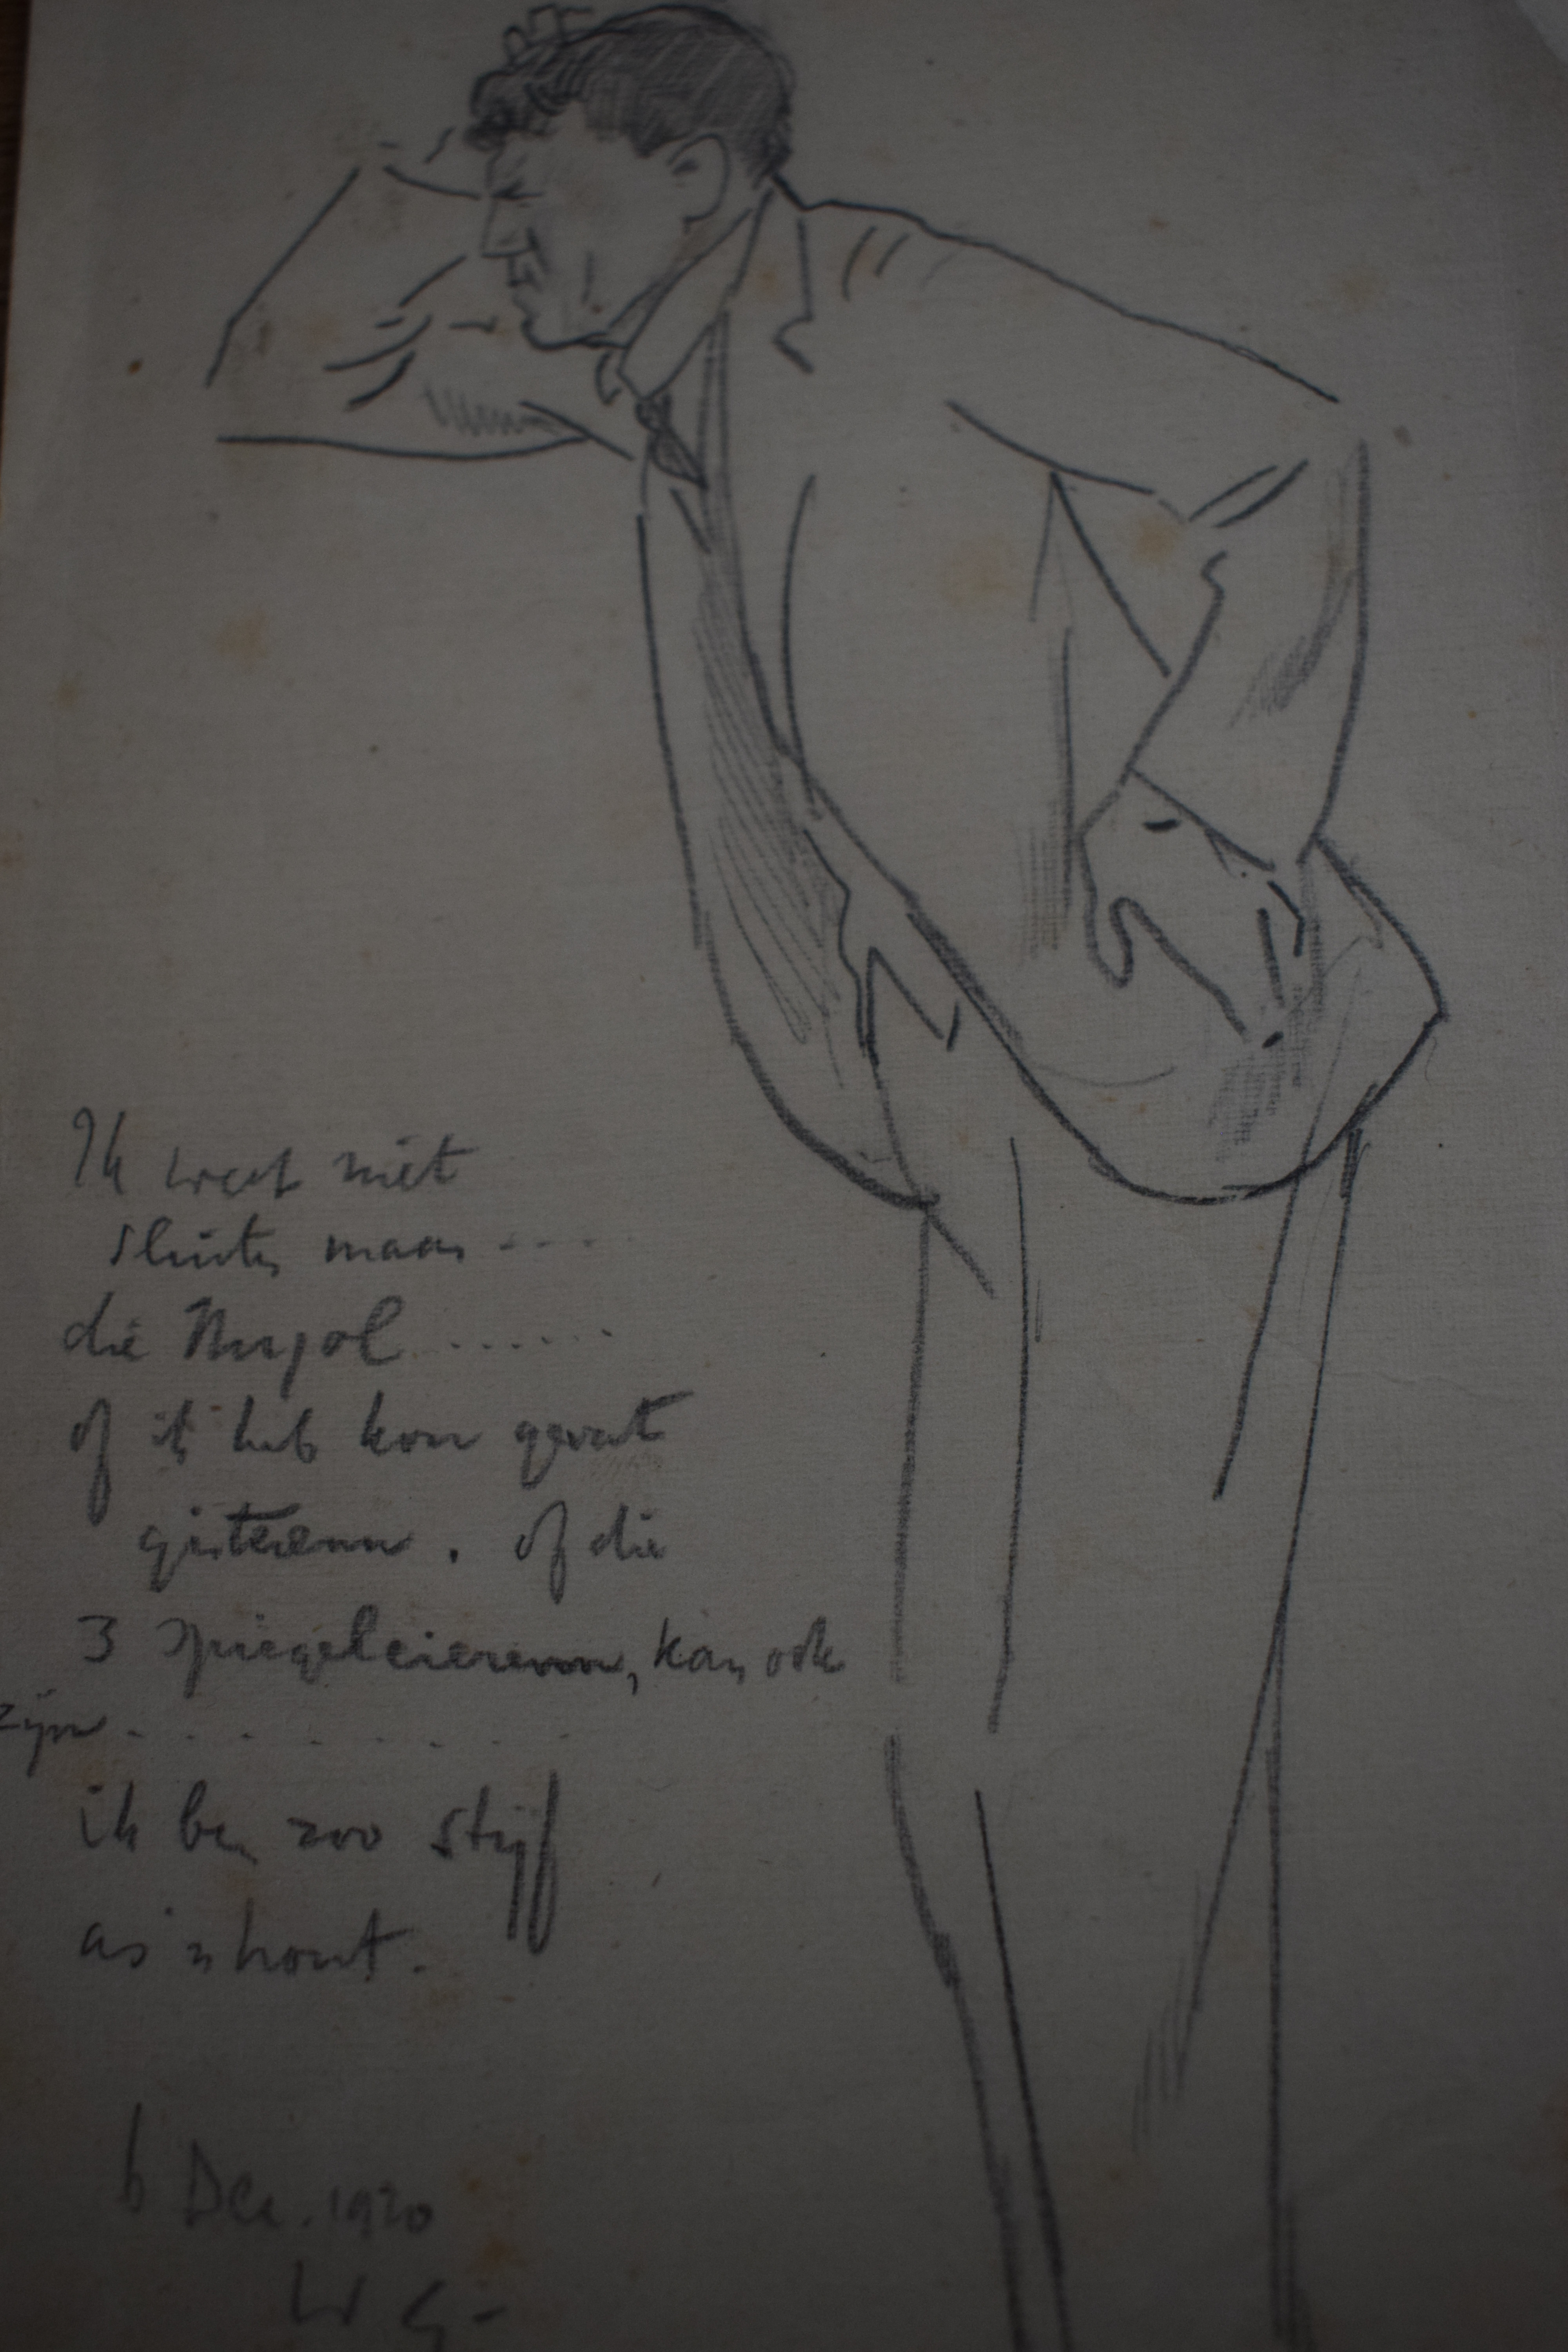 Ik weet niet
sluiten maar - - - -
die Nujol . . . . . .
of ik heb kou gevat
gisterenn . of die
3 spiegeleierenn, kan ook
zijn . . . . . . . .
ik ben zoo stijf
as 'n hout.
6 Dec. 1920
W G -